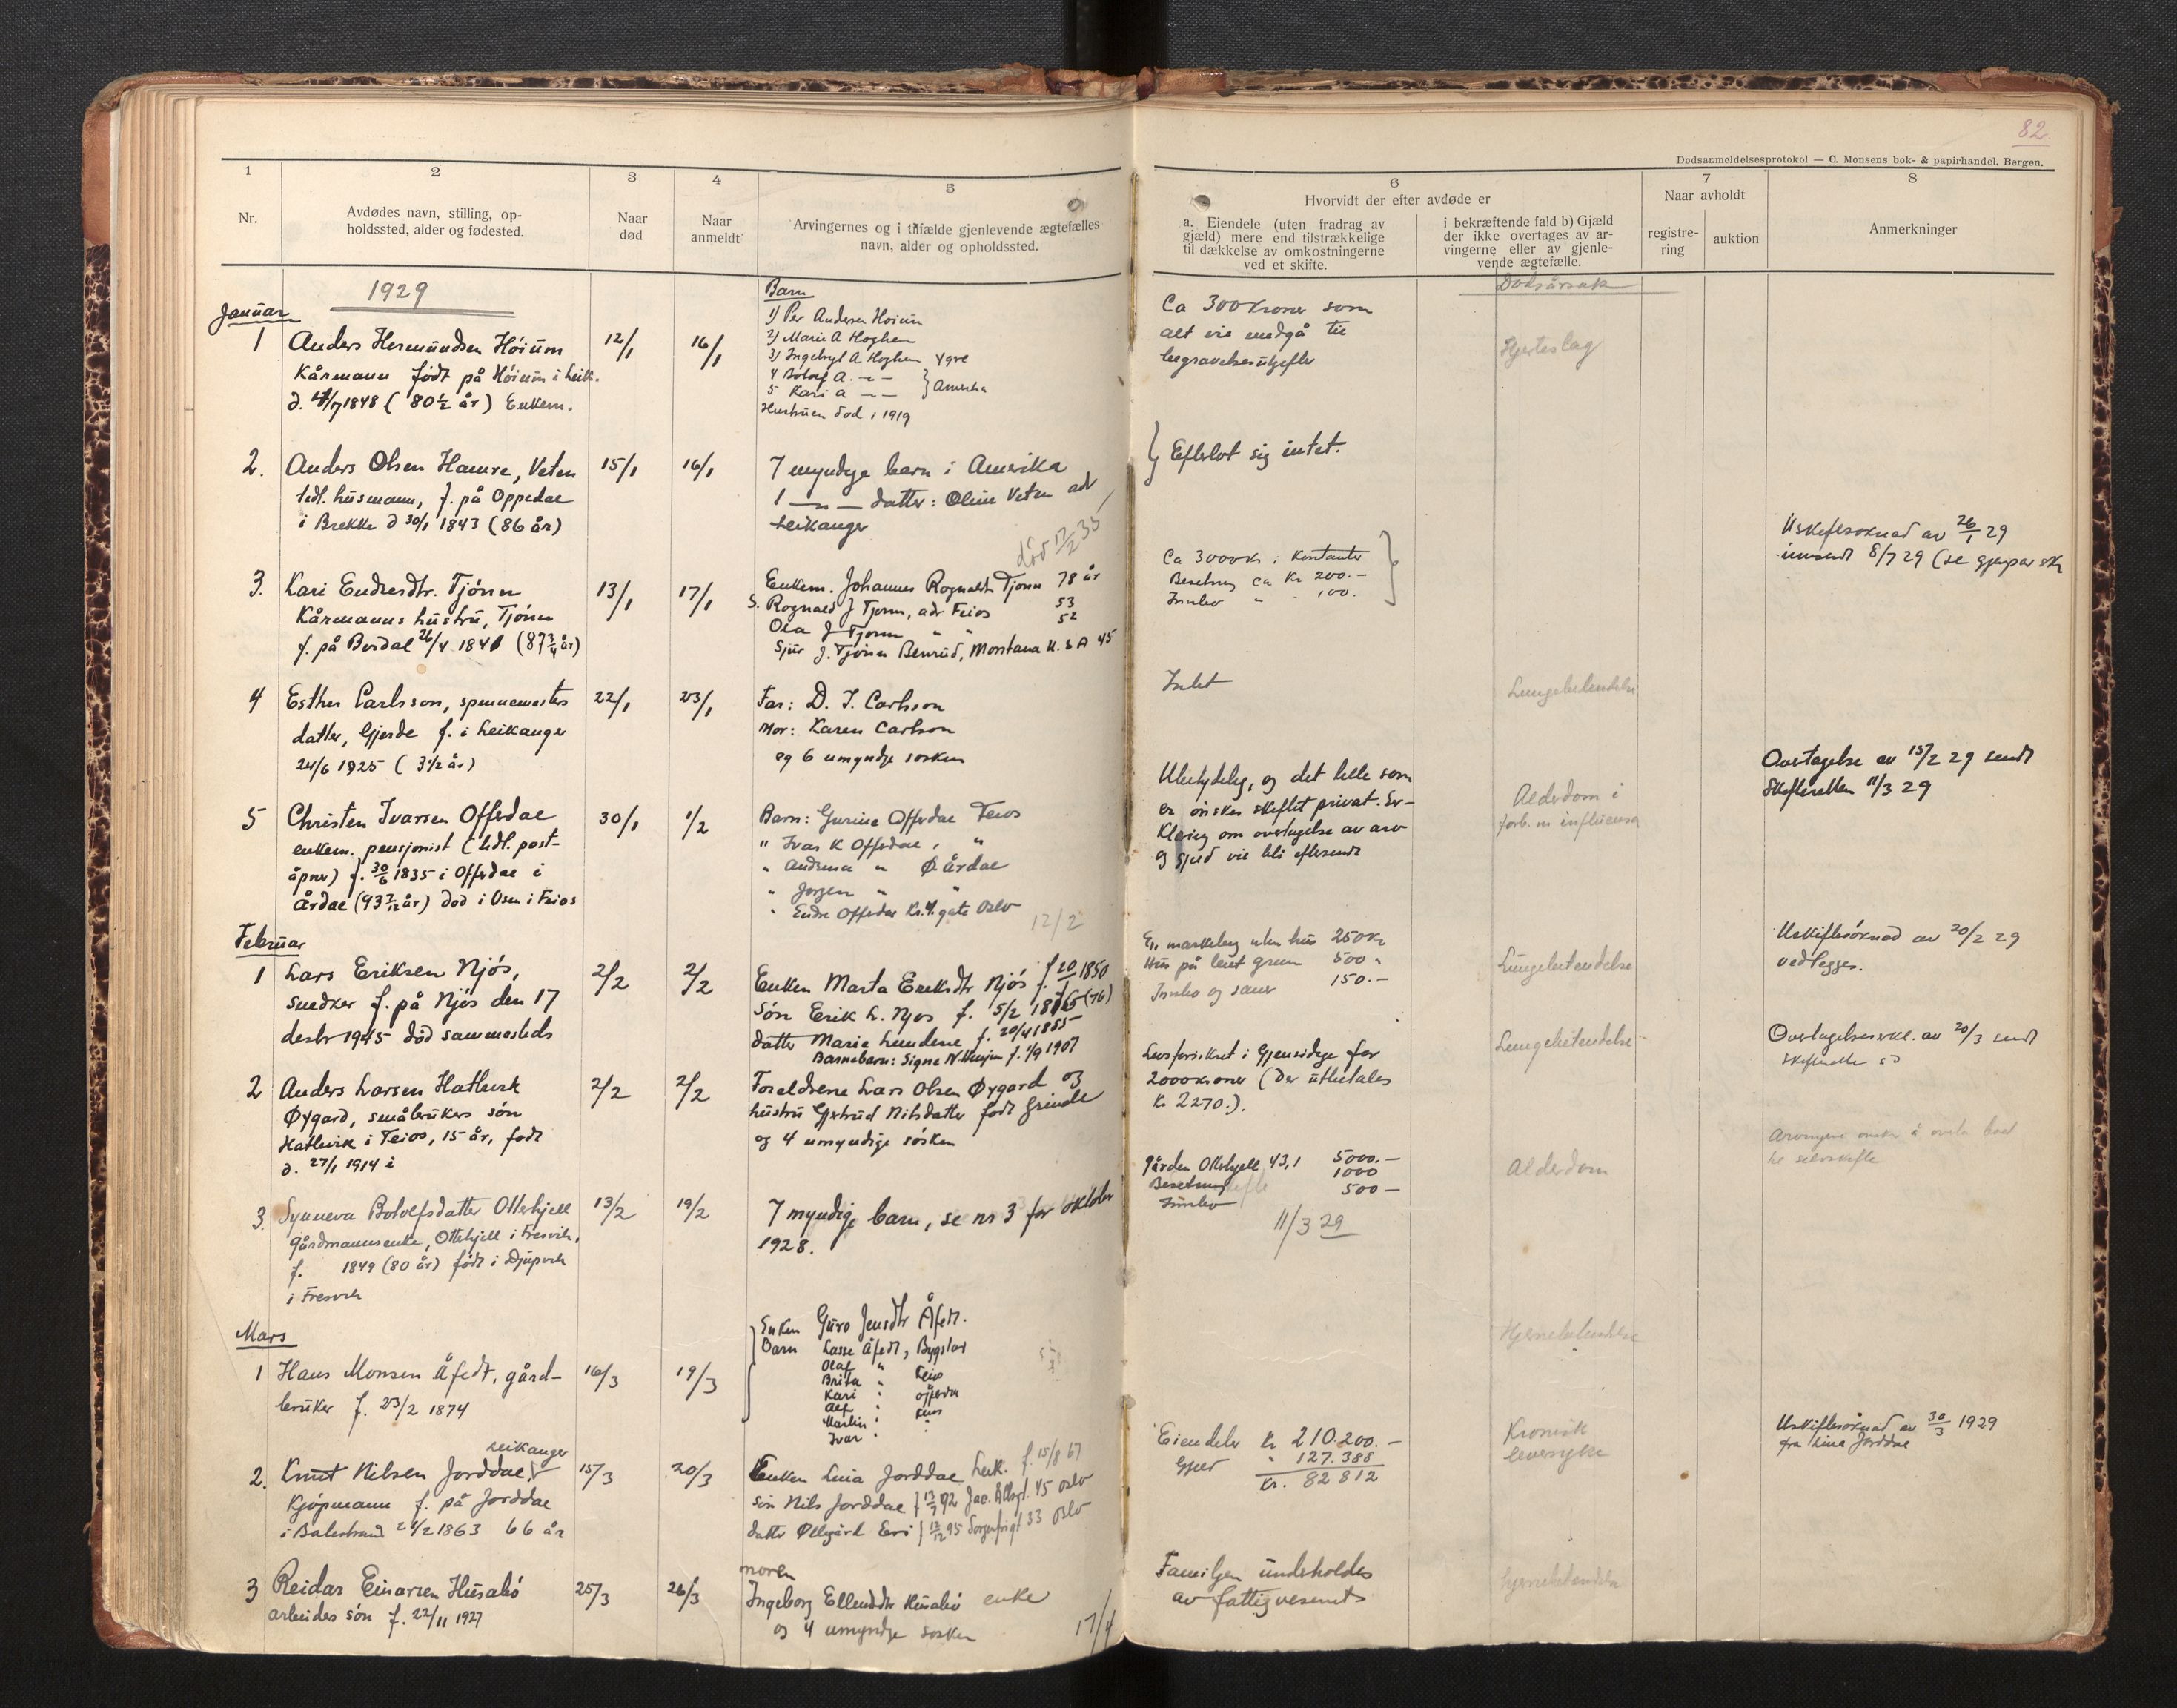 82
Dødsanmeldelsesprotokol — C. Monsens bok- & papirhandel. Bergen.
1 2 3 4 5
Nr.
Avdødes navn, stilling, op-
holdssted, alder og fødested.
Naar
død
Naar
anmeldt
Arvingernes og i tilfælde gjenlevende ægtefælles
navn, alder og opholdssted.
6 7 8
Hvorvidt der efter avdøde er
a. Eiendele (uten fradrag av
gjæld) mere end tilstrækkelige
til dækkelse av omkostningerne
ved et skifte.
i bekræftende fald b) Gjæld
der ikke overtages av ar-
vingerne eller av gjenle-
vende ægtefælle.
Naar avholdt
registre-
ring
auktion
Anmerkninger
Dødsårsak
1929
Januar
1 Anders Hermundsen Høium
Kårmann født på Høium i Leik.
d. /7 1848 (80 1/2 år) Enkem.
12/1 16/1
Barn
1) Per Andersen Høium
2) Marie A Hoghem
3) Ingebrgt A Hoghem Ygre
4 Botolf A. — " —
5 Kari A — " —
} Amerika
Hustruen død i 1919
Ca 300 kroner som
alt vil medgå til
begravelsesutgifter
Hjerteslag
2. Anders Olsen Hamre, Veten
fedl. husmann, f. på Oppedal
i Brekke d 30/1 1843 (86 år)
15/1 16/1
7 myndige barn i Amerika
1 — " — datter: Oline Veten adr
Leikanger
Efterlot sig intet.
3. Kari Endresdtr. Tjønn
Kårmanns hustru, Tjønn
f. på Bordal 26/4 1841 (87 3/4 år)
13/1 17/1
død 17/2 35
Enkem. Johannes Rognaldsn Tjønn 78 år
S. Rognald J Tjønn, adr Feios 53
Ola J Tjønn " " 52
Sjur J. Tjønn Benrud, Montana U.S.A 45
Ca 3000 kr i kontanter
Besetning ca Kr 200.-
Innbo " - 100.
Uskiftesøknad av 26/1 29
innsendt 8/7 29
4 Esther Carlsson, spennemesters
datter, Gjerde f. i Leikanger
24/6 1925 (3 1/2 år)
22/1 23/1
Far: D. J. Carlson
Mor: Karen Carlson
og 6 umyndige søsken
Intet
Lungebetendelse
5 Christen Ivarsen Offerdal
enkem. pensjonist (fedl. post-
åpner) f. 30/6 1835 i Offerdal i
Årdal (93 7/12 år) død i Osen i Feios
30/1 1/2
Barn: Gurine Offerdal Feios
" Ivar K Offerdal, "
" Andrina " Ø Årdal
" Jørgen " "
" Endre Offerdal Kr. 4. gate Oslo
12/2
Ubetydelig, og det lille som
er ønskes skiftet privat. Er-
klæring om overtagelse av arv
og gjeld vil bli eftersendt
Alderdom i
forb. m influensa
Overtagelse av 15/2 29 sendt
Skifteretten 11/3 29
Februar
1 Lars Eriksen Njøs,
snedker f. på Njøs den 17
desbr 1945 død sammesteds
2/2 2/2
Enken Marta Eriksdtr Njøs f. 20/ 1850
Søn Erik L. Njøs f. 5/2 1876 (76)
datter Marie Lundene f. 20/4 1885
Barnebarn: Signe N. f. 1/9 1907
En markeleng uten hus 250 Kr
Hus på leiet grunn 500 "
Innbo og sauer 150.-
Lungebetendelse
Uskiftesøknad av 20/2 29
vedlegges.
2 Anders Larsen Hatlevik
Øygard, småbrukers søn
Hatlevik i Feios, 15 år, født
d. 27/1 1914 i
2/2 2/2
Foreldrene Lars Olsen Øygard og
hustru Gjertrud Nilsdatter født Grinde
og 4 umyndige søsken
Livsforsikret i Gjensidige for
2000 kroner (Der utbetales
Kr 2270.).
Lungebetendelse
Overtagelseserkl. av 20/3 sendt
Skifteretten s d
3. Synneva Botolfsdatter Otterhjell
gårdmannsenke, Otterhjell i Fresvik,
f. 1849 (80 år) født i Djupvik
i Fresvik
13/2 19/2
7 myndige barn, se nr 3 for oktober
1928.
Gården Otterhjell 43,1 5000.—
Besetning 1000
Innbo 500 —
11/3 29
Alderdom
Arvingene ønsker å overta boet
til selvskifte
Mars
1 Hans Monsen Åfedt, gård-
bruker f. 23/2 1874
16/3 19/3
Enken Guro Jensdtr Åfedt.
Barn Lasse Åfedt, Bygstad
Olaf " Feios
Brita "
Kari " Offerdal
Alf " Feios
Martin " "
Ivar "
Hjernebetendelse
2. Knut Nilsen Jorddal, Leikanger
Kjøpmann f. på Jorddal
i Balestrand 21/2 1863 66 år
15/3 20/3
Enken Lina Jorddal Leik. f. 15/8 67
Søn Nils Jorddal f 13/7 92 Jac. Allsgt. 45 Oslo
datter Ølegård Eri f 13/12 95 Sorgenfrigt 33 Oslo
Eiendeler Kr 210.200.—
Gjeld " 127.388
Kr. 82 812
Kronisk
leversyke
Uskiftesøknad av 30/3 1929
fra Lina Jorddal
3 Reidar Einarsen Husabø
arbeiders søn f. 22/11 1927
25/3 26/3
moren
Ingeborg Ellendtr Husabø enke
og 4 umyndige søsken
17/4
Familjen underholdes
av fattigvesenet
Hjernebetendelse